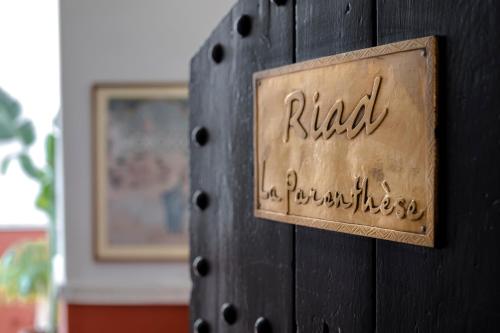 Riad
La Parenthèse